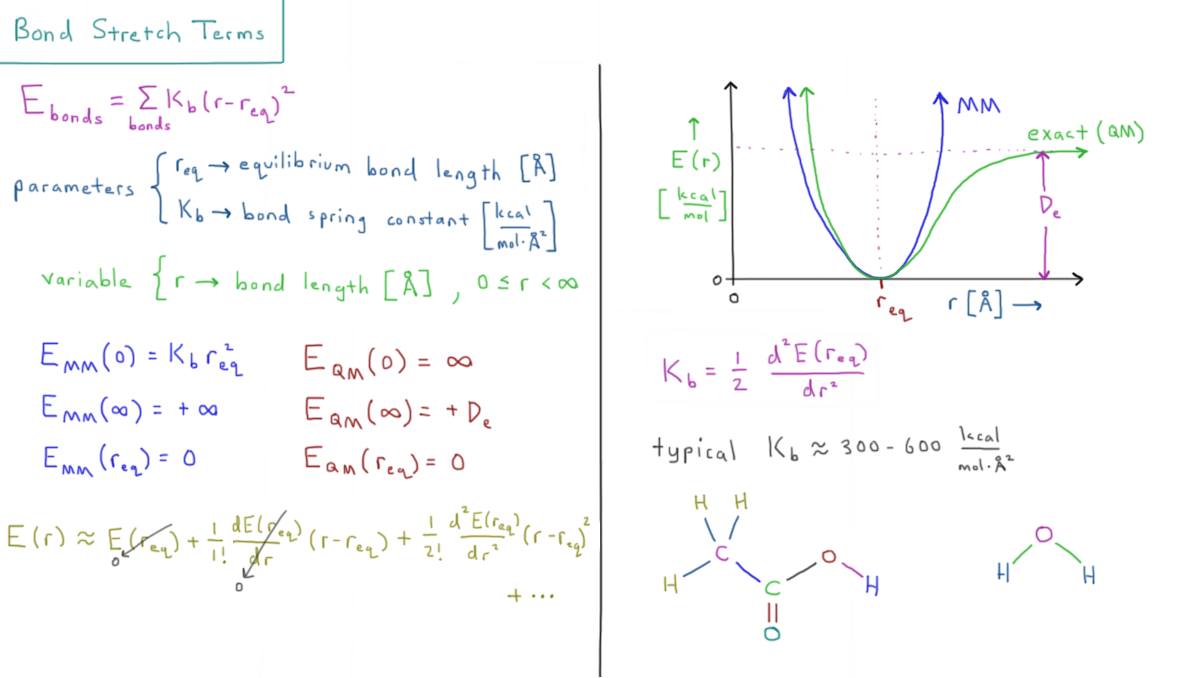 Bond Stretch Terms
E_bonds = Σ_bonds K_b (r-r_eq)²
parameters { r_eq → equilibrium bond length [Å]
K_b → bond spring constant [kcal/mol·Å²]
variable { r → bond length [Å], 0 ≤ r < ∞
E_MM(0) = K_b r_eq²
E_QM(0) = ∞
E_MM(∞) = +∞
E_QM(∞) = +D_e
E_MM(r_eq) = 0
E_QM(r_eq) = 0
E(r) ≈ E(r_eq) + 1/1! dE(r_eq)/dr (r-r_eq) + 1/2! d²E(r_eq)/dr² (r-r_eq)²
0
0
+ ...
MM
exact (QM)
↑
E(r)
[kcal/mol]
D_e
0
0
r_eq
r [Å] →
K_b = 1/2 d²E(r_eq)/dr²
typical K_b ≈ 300-600 kcal/mol·Å²
H H
C O
H H
C
O
O
H H